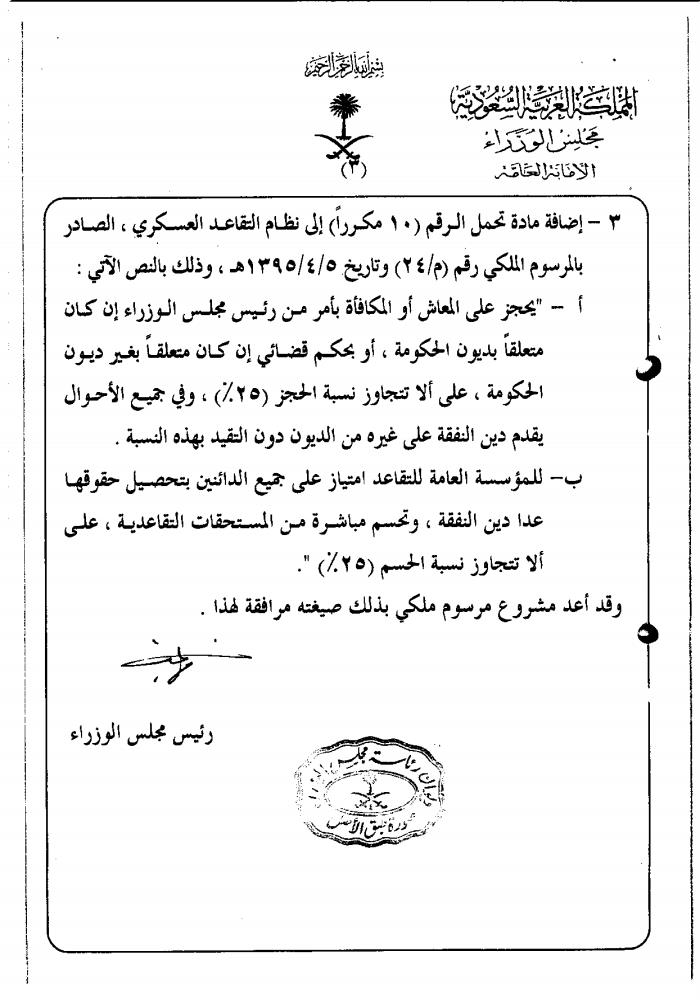 بسم الله الرحمن الرحيم
المملكة العربية السعودية
مجلس الوزراء
الأمانة العامة
(٣)
٣ – إضافة مادة تحمل الرقم (١٠ مكرراً) إلى نظام التقاعد العسكري ، الصادر
بالمرسوم الملكي رقم (م/٢٤) وتاريخ ١٣٩٥/٤/٥هـ ، وذلك بالنص الآتي :
أ – "يحجز على المعاش أو المكافأة بأمر من رئيس مجلس الوزراء إن كان
متعلقاً بديون الحكومة ، أو بحكم قضائي إن كان متعلقاً بغير ديون
الحكومة ، على ألا تتجاوز نسبة الحجز (٢٥٪) ، وفي جميع الأحوال
يقدم دين النفقة على غيره من الديون دون التقيد بهذه النسبة .
ب– للمؤسسة العامة للتقاعد امتياز على جميع الدائنين بتحصيل حقوقها
عدا دين النفقة ، وتحسم مباشرة من المستحقات التقاعدية ، على
ألا تتجاوز نسبة الحسم (٢٥٪) ".
وقد أعد مشروع مرسوم ملكي بذلك صيغته مرافقة لهذا .
رئيس مجلس الوزراء
ديوان رئاسة مجلس الوزراء
صورة طبق الأصل